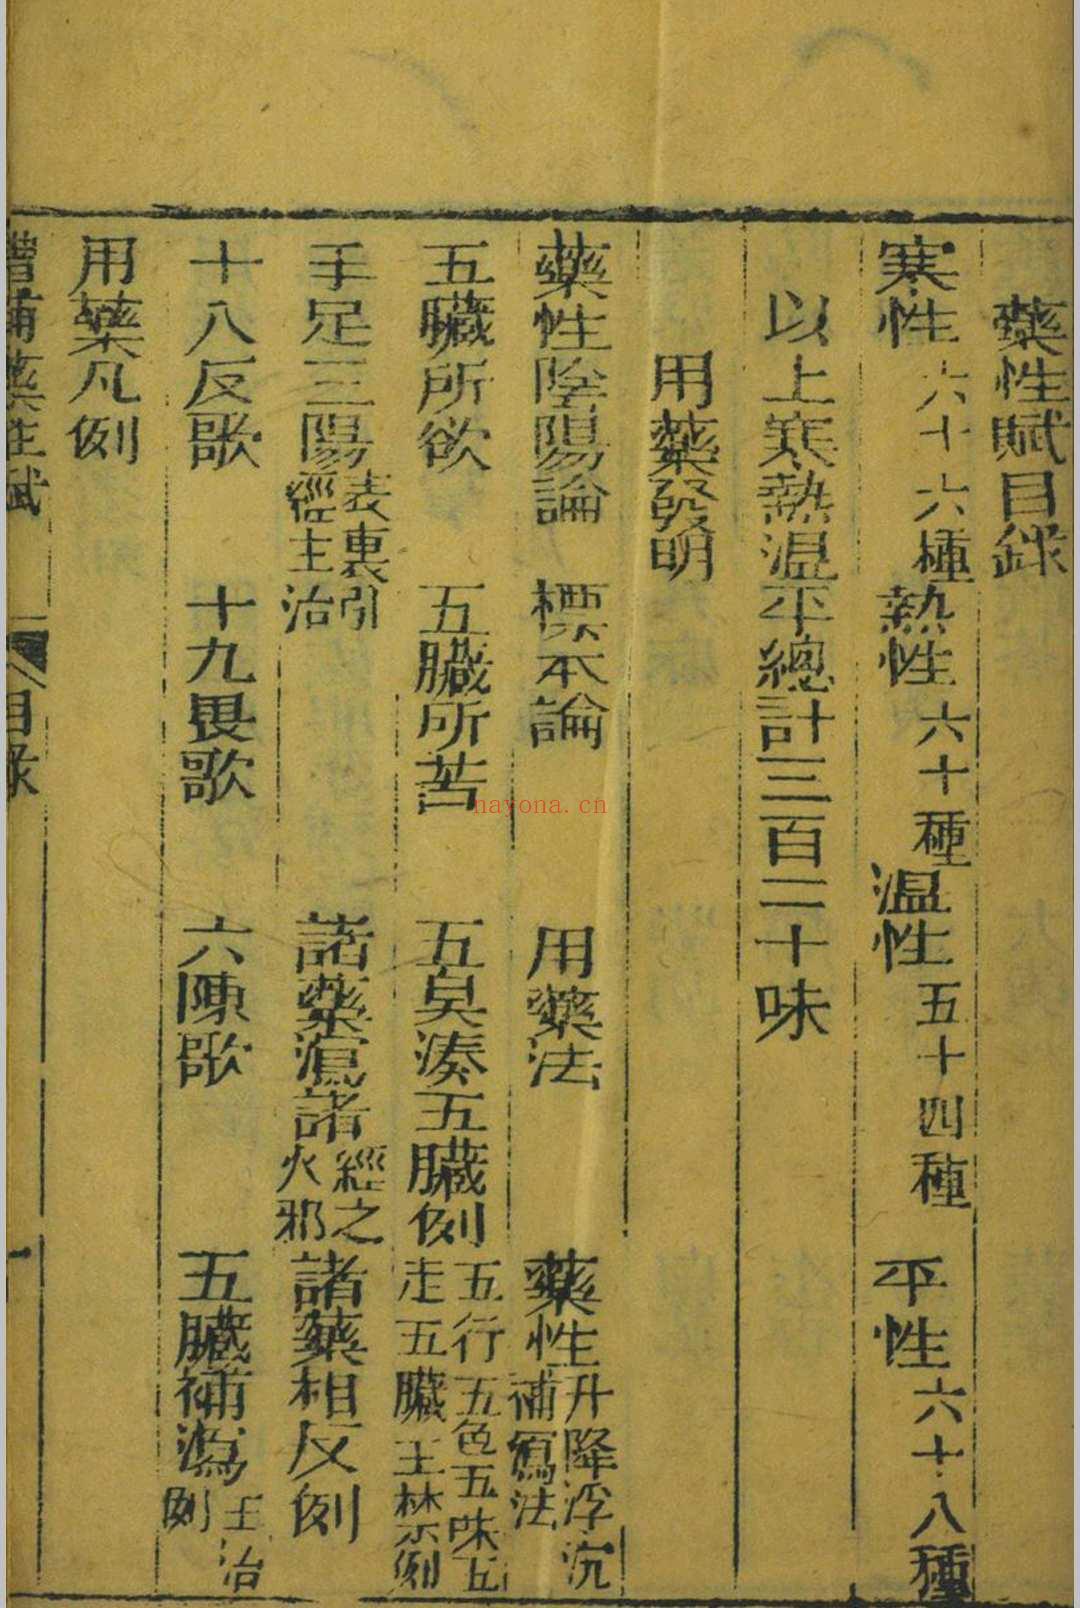 藥性賦目錄
寒性六十六種 熱性六十種 温性五十四種 平性六十八種
以上寒熱温平總計三百二十味
用藥發明
藥性陰陽論 標本論 用藥法 藥性升降浮沉補瀉法
五臟所欲 五臟所苦 五臭湊五臟例 五行五色五味五走五臟主禁例
手足三陽表裏引經主治 諸藥瀉諸經之火邪 諸藥相反例
十八反歌 十九畏歌 六陳歌 五臟補瀉主治例
用藥凡例
增補藥性賦 目錄 一
nayona.cn